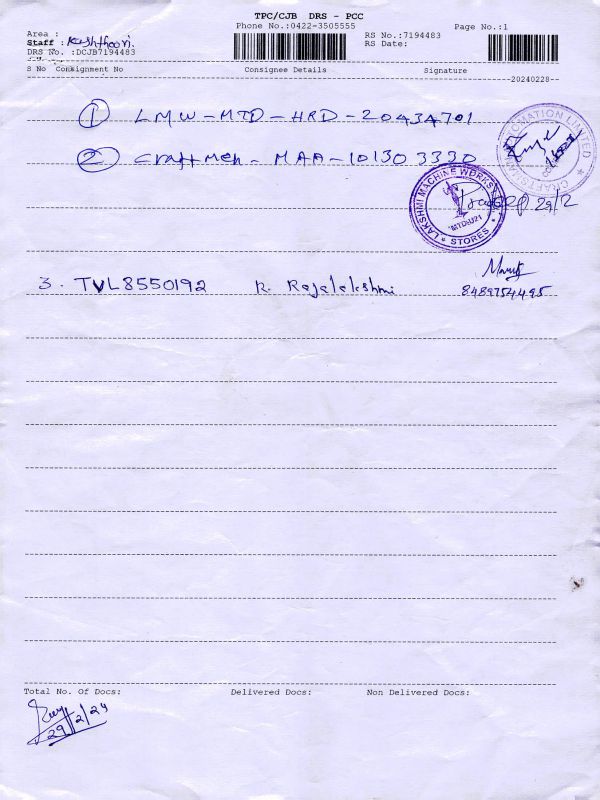 TPC/CJB DRS - PCC
Phone No.:0422-3505555
Page No.:1
Area :
RS No.:7194483
Staff :
RS Date:
DRS No. :DCJB7194483
S No Consignment No Consignee Details Signature
20240228
1 LMW-MTD-HRD-20434701
2 Craftmen - MAA-101303330
LAKSHMI MACHINE WORKS
MTD-U21
STORES
29/2
3. TVL8550192 R. Rajalakshmi 8489754495
Total No. Of Docs: Delivered Docs: Non Delivered Docs:
29/2/24